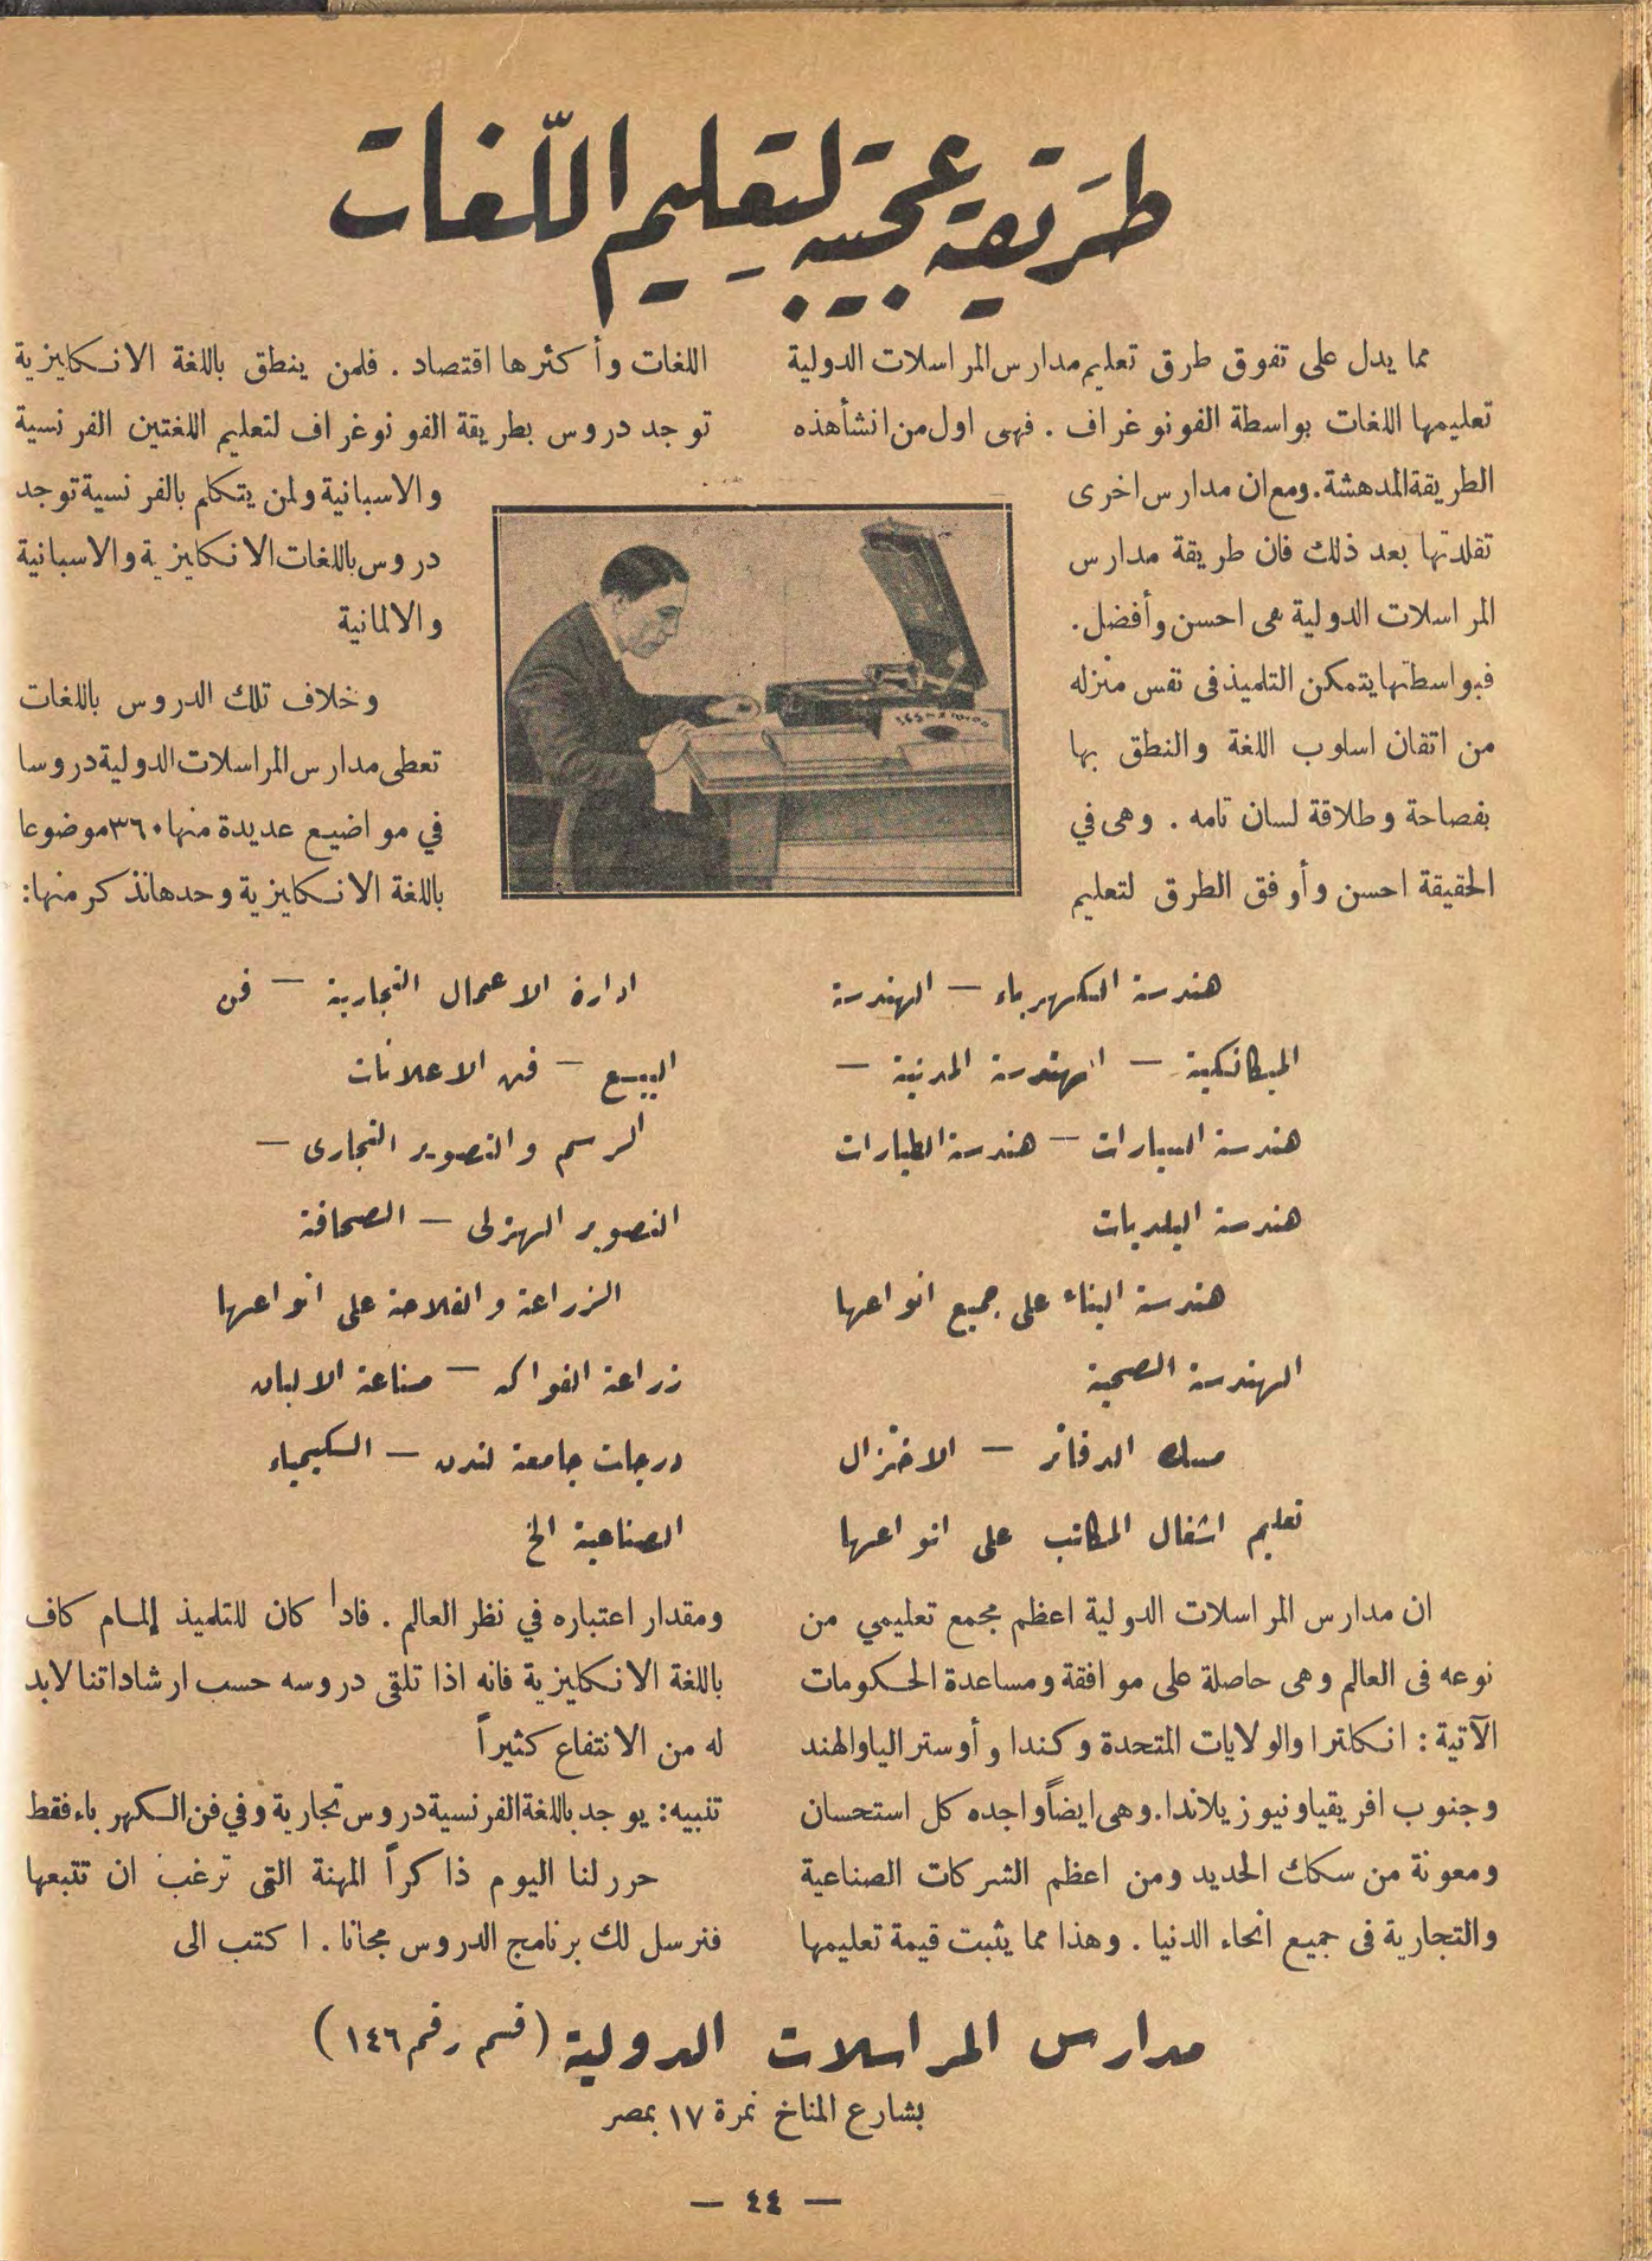 طريقة عجيبة لتعليم اللّغات
مما يدل على تفوق طرق تعليم مدارس المراسلات الدولية
تعليمها اللغات بواسطة الفونوغراف . فهى اول من انشأ هذه
الطريقة المدهشة . ومع ان مدارس اخرى
تقلدتها بعد ذلك فان طريقة مدارس
المراسلات الدولية هى احسن وأفضل .
فبواسطتها يتمكن التلميذ فى نفس منزله
من اتقان اسلوب اللغة والنطق بها
بفصاحة وطلاقة لسان تامه . وهى في
الحقيقة احسن وأوفق الطرق لتعليم
اللغات وأكثرها اقتصاد . فلمن ينطق باللغة الانكليزية
توجد دروس بطريقة الفونوغراف لتعليم اللغتين الفرنسية
والاسبانية ولمن يتكلم بالفرنسية توجد
دروس باللغات الانكليزية والاسبانية
والالمانية
وخلاف تلك الدروس باللغات
تعطى مدارس المراسلات الدولية دروسا
في مواضيع عديدة منها ٣٦٠ موضوعا
باللغة الانكليزية وحدها نذكر منها :
هندسة الكهرباء — الهندسة
الميكانيكية — الهندسة المدنية —
هندسة السيارات — هندسة الطيارات
هندسة البلديات
هندسة البناء على جميع انواعها
الهندسة الصحية
مسك الدفاتر — الاختزال
تعليم اشغال المكاتب على انواعها
ادارة الاعمال التجارية — فن
البيع — فن الاعلانات
الرسم والتصوير التجارى —
التصوير الهزلى — الصحافة
الزراعة والفلاحة على انواعها
زراعة الفواكه — صناعة الالبان
درجات جامعة لندن — الكيمياء
الصناعية الخ
ان مدارس المراسلات الدولية اعظم مجمع تعليمي من
نوعه فى العالم وهى حاصلة على موافقة ومساعدة الحكومات
الآتية : انكلترا والولايات المتحدة وكندا وأوستراليا والهند
وجنوب افريقيا ونيوزيلاندا . وهى ايضاً واجده كل استحسان
ومعونة من سكك الحديد ومن اعظم الشركات الصناعية
والتجارية فى جميع انحاء الدنيا . وهذا مما يثبت قيمة تعليمها
ومقدار اعتباره في نظر العالم . فاذا كان للتلميذ إلمام كاف
باللغة الانكليزية فانه اذا تلقى دروسه حسب ارشاداتنا لابد
له من الانتفاع كثيراً
تنبيه : يوجد باللغة الفرنسية دروس تجارية وفي فن الكهرباء فقط
حرر لنا اليوم ذاكراً المهنة التى ترغب ان تتبعها
فنرسل لك برنامج الدروس مجانا . اكتب الى
مدارس المراسلات الدولية (قسم رقم ١٤٦)
بشارع المناخ نمرة ١٧ بمصر
— ٤٤ —